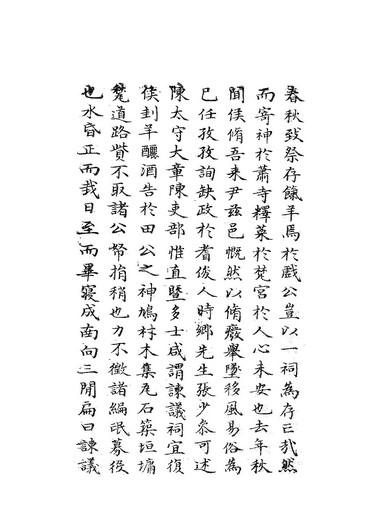 春秋致祭存餼羊焉於戲公豈以一祠為存亡哉然
而寄神於蕭寺釋菜於梵宮於人心未安也去年秋
閒侯脩吾來尹茲邑慨然以脩廢舉墜移風易俗為
已任孜孜詢缺政於耆俊人時鄉先生張少叅可述
陳太守大章陳吏部惟直暨多士咸謂諫議祠宜復
侯刲羊釃酒告於田公之神鳩材木集瓦石築垣墉
甃道路貲不取諸公帑捐稍也力不徵諸編氓募役
也水昏正而栽日至而畢寢成南向三閒扁曰諫議